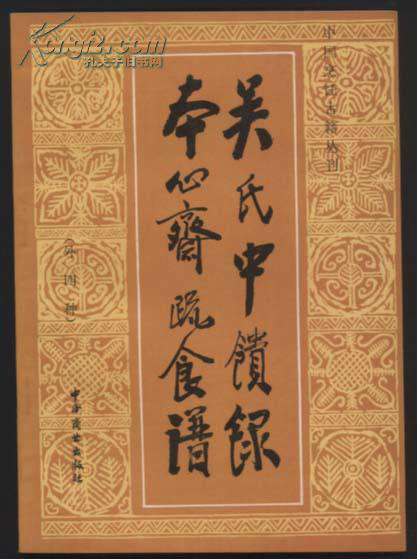 中国烹饪古籍丛刊
吴氏中馈录
本心斋疏食谱
（外四种）
中国商业出版社
Kongfz.com
孔夫子旧书网